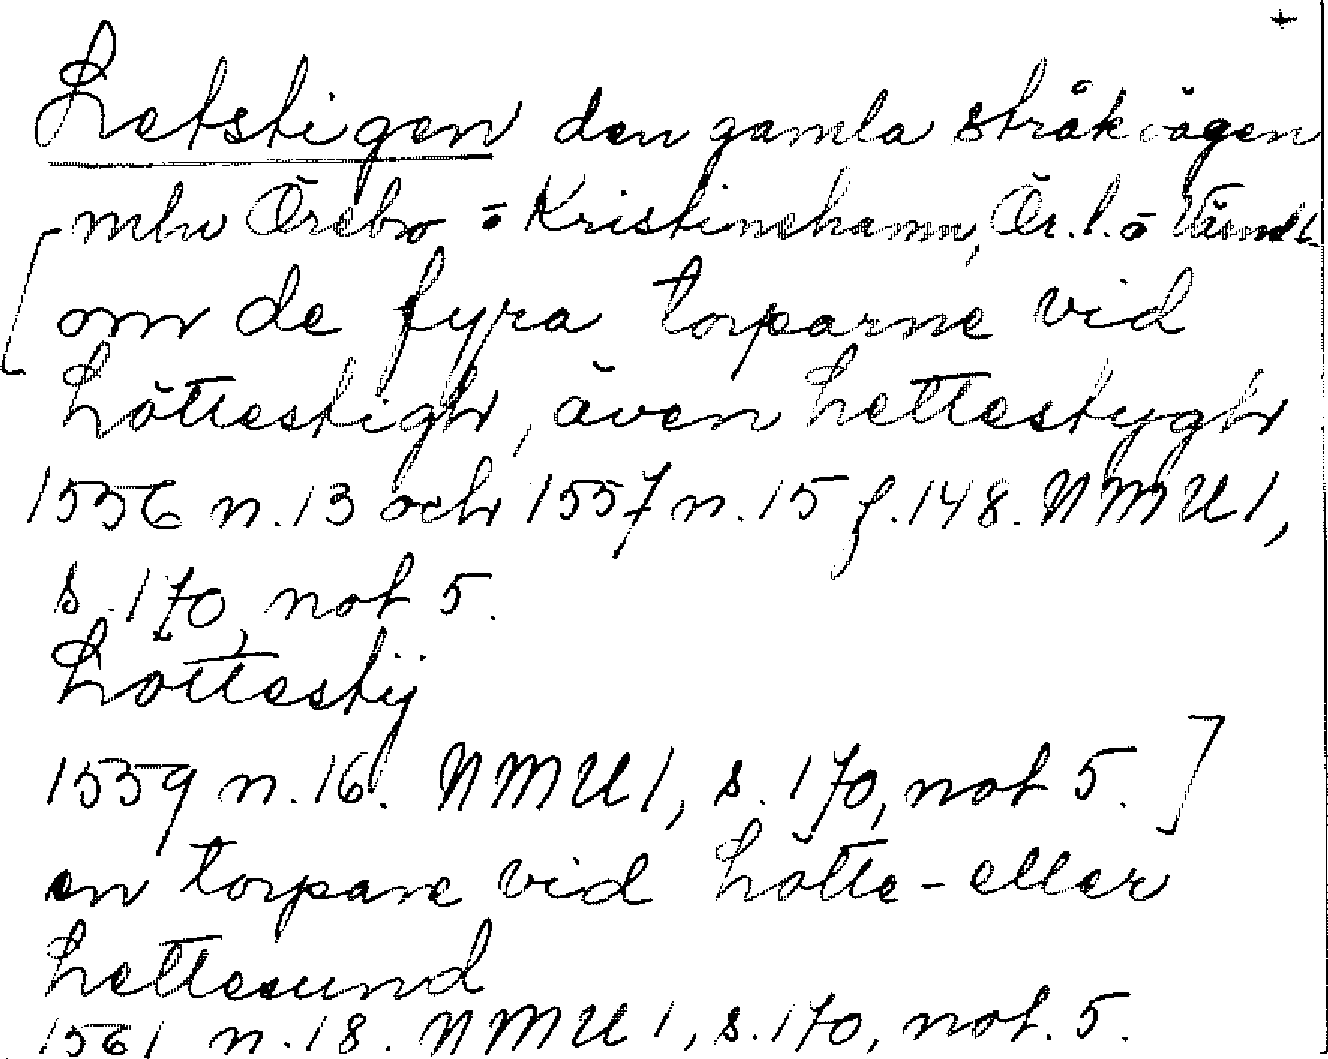 +
Letstigen den gamla stråkvägen
mlw Örebro o Kristinehamn, Ör. l. o Värml.
[om de fyra torparne vid
Löttestigh, även Lettestygh
1556 n. 13 och 1557 n. 15 f. 148. NMU 1,
s. 170, not 5.
Lottestij
1559 n. 16. NMU 1, s. 170, not 5.]
en torpare vid Lötte- eller
Lettesund
1561 n. 18. NMU 1, s. 170, not. 5.